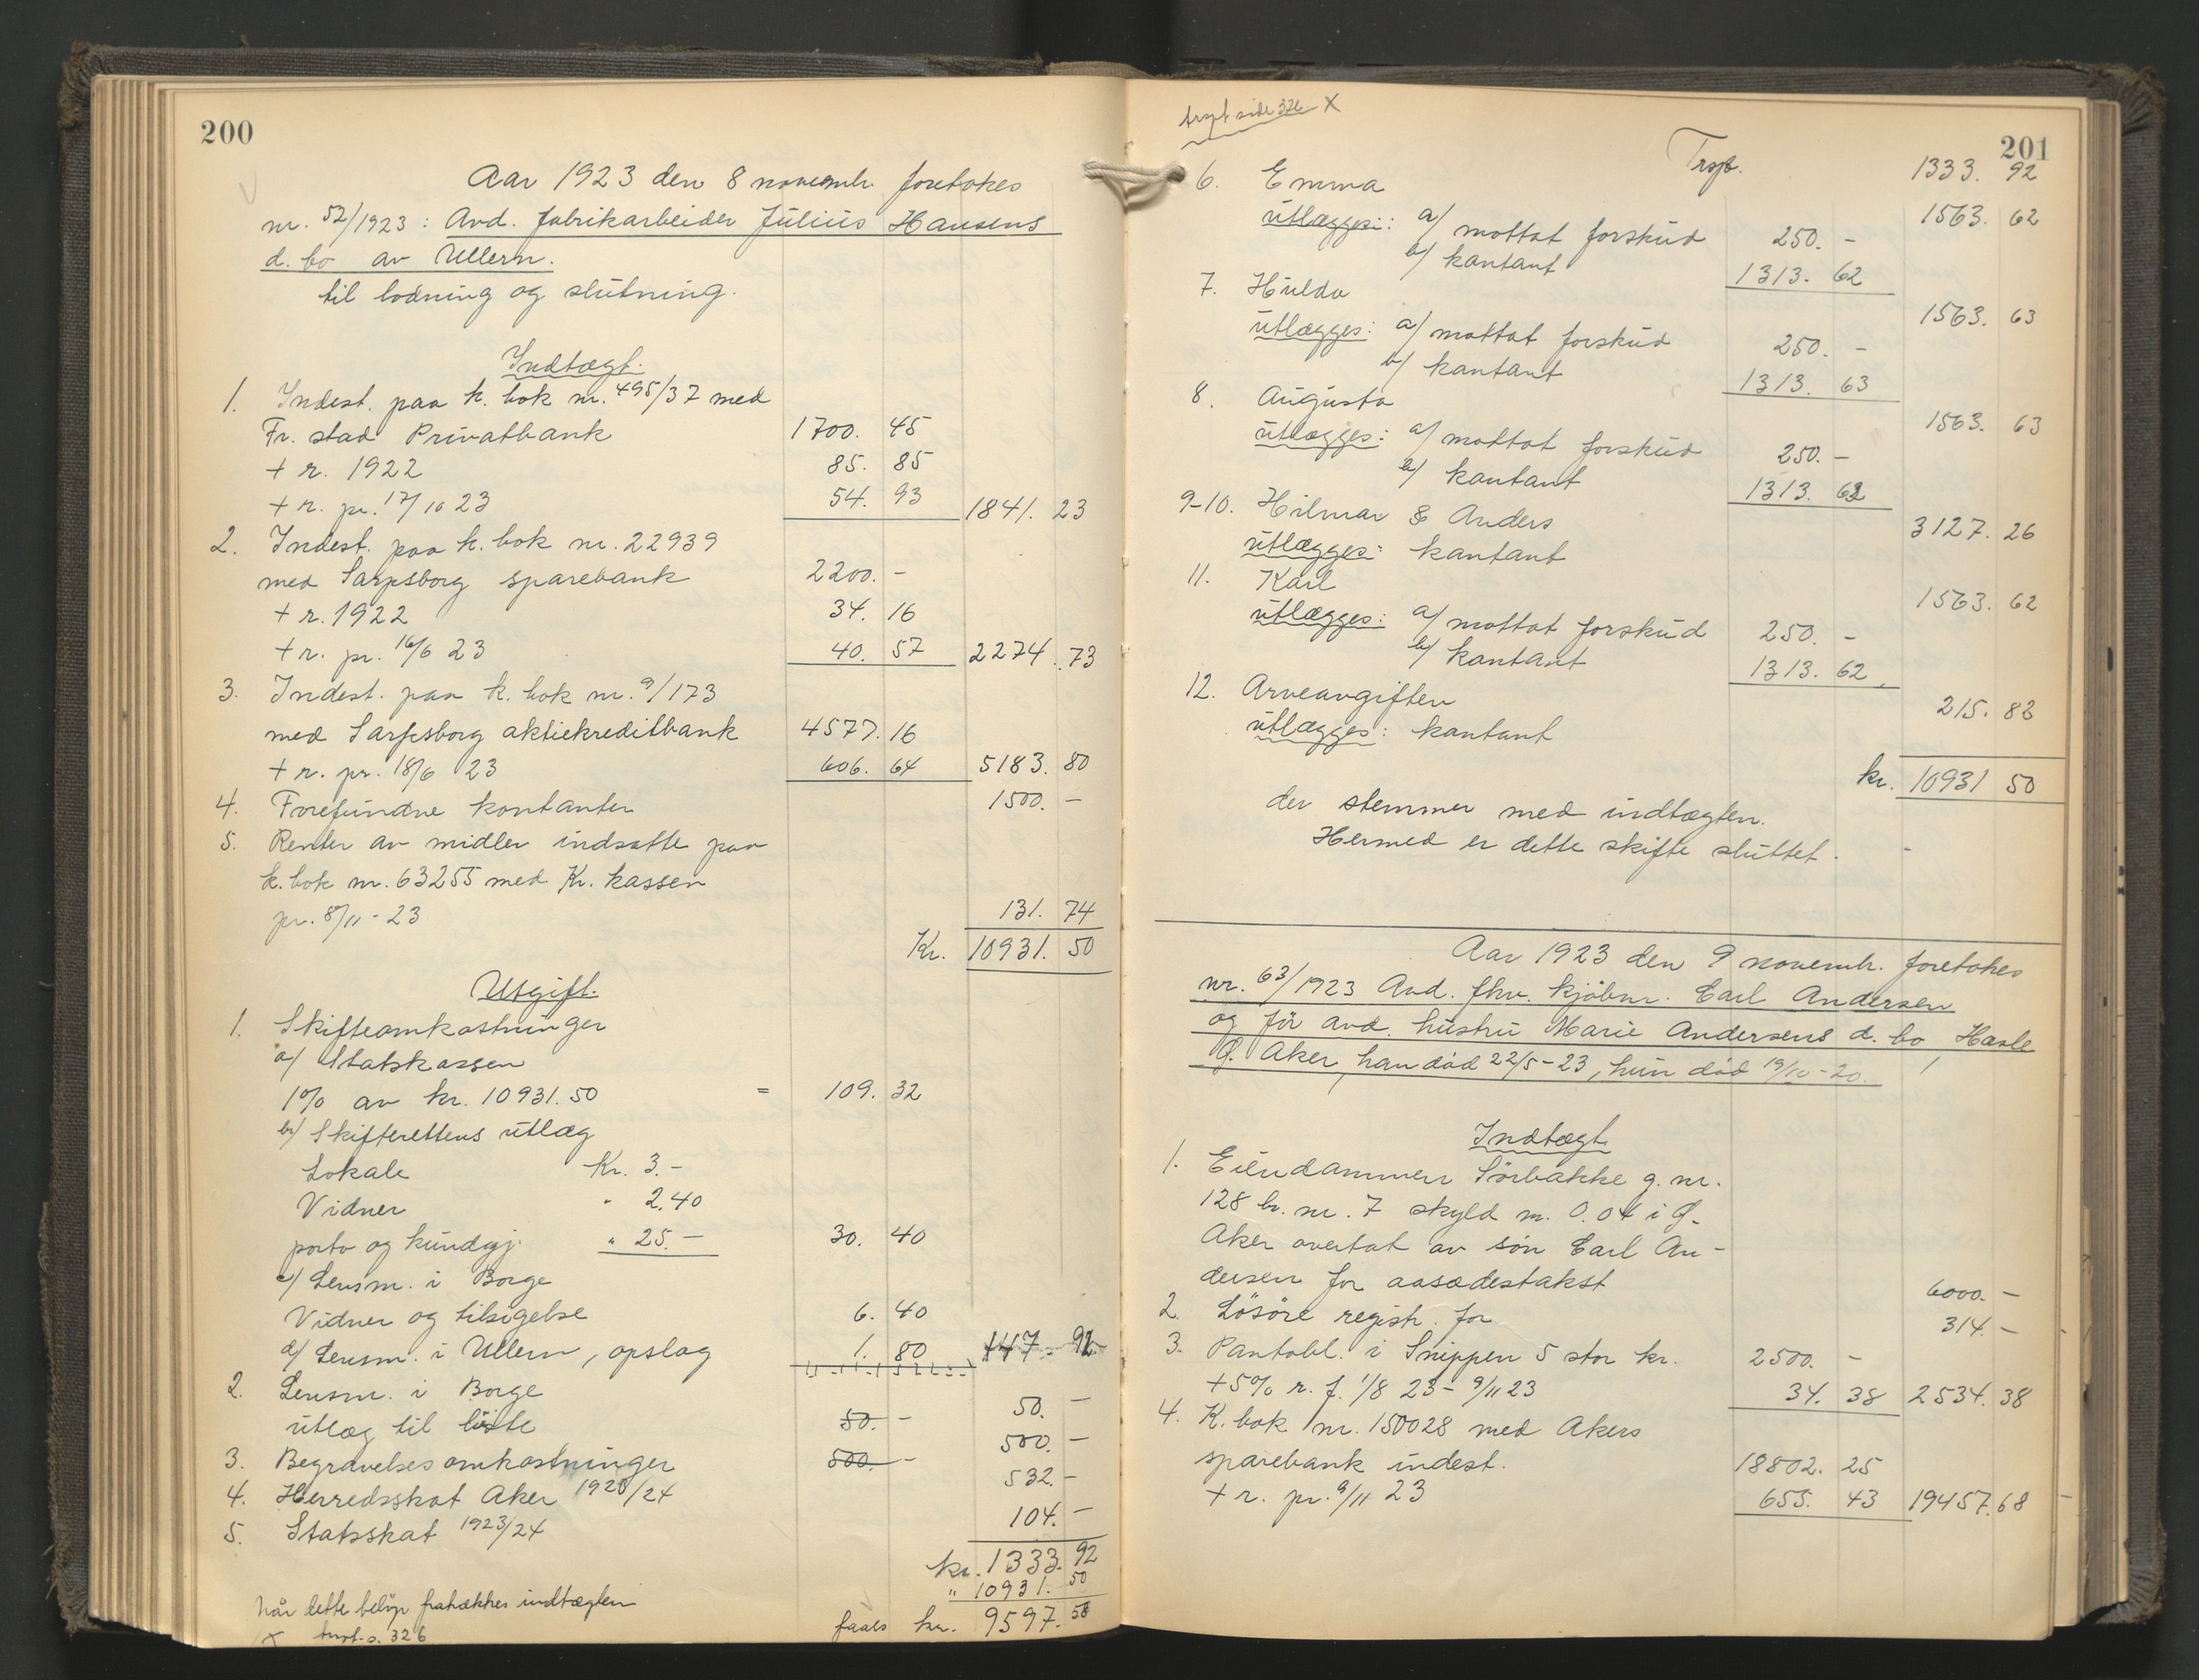 200
Aar 1923 den 8 novembr. foretokes
nr. 52/1923: Avd. fabrikarbeider Julius Hansens
d. bo av Ullern.
til lodning og slutning.
Indtægt.
1. Indest. paa k. bok nr. 495/37 med
Fr. stad Privatbank 1700. 45
+ r. 1922 85. 85
+ r. pr. 17/10 23 54. 93 1841. 23
2. Indest. paa k. bok nr. 22939
med Sarpsborg sparebank 2200. -
+ r. 1922 34. 16
+ r. pr. 16/6 23 40. 57 2274. 73
3. Indest. paa k. bok nr. 9/173
med Sarpsborg aktiekreditbank 4577. 16
+ r. pr. 18/6 23 606. 64 5183. 80
4. Forefundne kontanter 1500. -
5. Renter av midler indsatte paa
k. bok nr. 63255 med Kr. kassen
pr. 8/11 - 23 131. 74
Kr. 10931. 50
Utgift.
1. Skifteomkostninger
a/ Statskassen
1% av kr. 10931.50 = 109. 32
b/ Skifterettens utlæg
Lokale Kr. 3.-
Vidner " 2.40
porto og kundgj. " 25.- 30. 40
c/ Lensm. i Borge
Vidner og tilsigelse 6. 40
d/ Lensm. i Ullern, opslag 1. 80 147. 92
2. Lensm. i Borge
utlæg til liste 50. - 50. -
3. Begravelsesomkostninger 500. - 500. -
4. Herredsskat Aker 1923/24 532. -
5. Statsskat 1923/24 104. -
kr. 1333. 92
" 10931. 50
Når dette beløp fratrækkes indtægten
faaes kr. 9597. 58
X trspt. s. 326
trspt side 326 X
201
Trsp. 1333. 92
6. Emma 1563. 62
utlægges: a/ mottat forskud 250. -
b/ kontant 1313. 62
7. Hulda 1563. 63
utlægges: a/ mottat forskud 250. -
b/ kontant 1313. 63
8. Augusta 1563. 63
utlægges: a/ mottat forskud 250. -
b/ kontant 1313. 63
9-10. Hilmar & Anders 3127. 26
utlægges: kontant
11. Karl 1563. 62
utlægges: a/ mottat forskud 250. -
b/ kontant 1313. 62
12. Arveavgiften 215. 82
utlægges: kontant
kr. 10931 50
der stemmer med indtægten.
Hermed er dette skifte sluttet.
Aar 1923 den 9 novembr. foretokes
nr. 63/1923 Avd. fhv. kjøbm. Carl Andersen
og før avd. hustru Marie Andersens d. bo Hasle
Ø. Aker, han død 22/5-23, hun død 19/10-20.
Indtægt
1. Eiendommen Sørbakke g. nr.
128 br. nr. 7 skyld m. 0.04 i Ø.
Aker overtat av søn Carl An-
dersen for aasædestakst 6000. -
2. Løsøre registr. for 314. -
3. Pantobl. i Snippen 5 stor kr. 2500. -
+ 5% r. f. 1/8 23 - 9/11 23 34. 38 2534. 38
4. K. bok nr. 150028 med Akers
sparebank indest. 18802. 25
+ r. pr. 9/11 23 655. 43 19457. 68